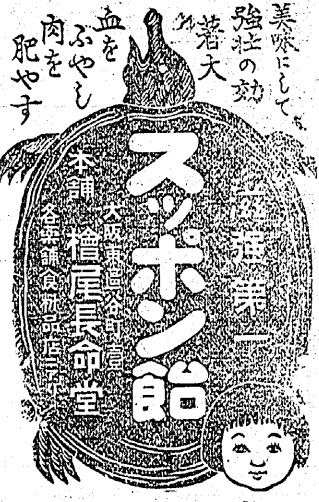 美味にして
強壮の効
著大
血を
ふやし
肉を
肥やす
滋強第一
スッポン飴
大阪東區谷町壱
本舗 檜屋長命堂
各薬舗食料品店ニアリ